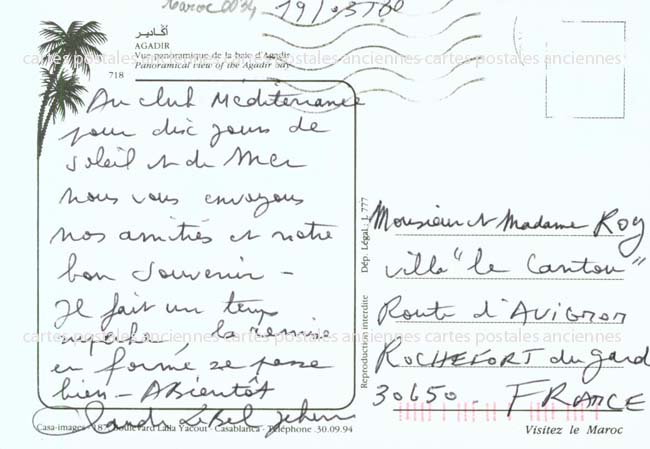 Maroc 0034
19/03T80
أڭادير
AGADIR
Vue panoramique de la baie d'Agadir
Panoramical view of the Agadir bay
cartes postales anciennes cartes postales anciennes cartes postales anciennes
718
Au club Méditerranée
pour dix jours de
soleil et de Mer
nous vous envoyons
nos amitiés et notre
bon souvenir -
Il fait un temps
superbe, la remise
en forme se passe
bien - ABientôt
cartes postales anciennes cartes postales anciennes cartes postales anciennes
Casa-images - 187 Boulevard Lalla Yacout - Casablanca - Téléphone 30.09.94
Reproduction interdite Dép. Légal. : L 777
Monsieur et Madame Roy
villa "le Cantou"
Route d'AVIGNON
ROCHEFORT du gard
30650 - FRANCE
Visitez le Maroc